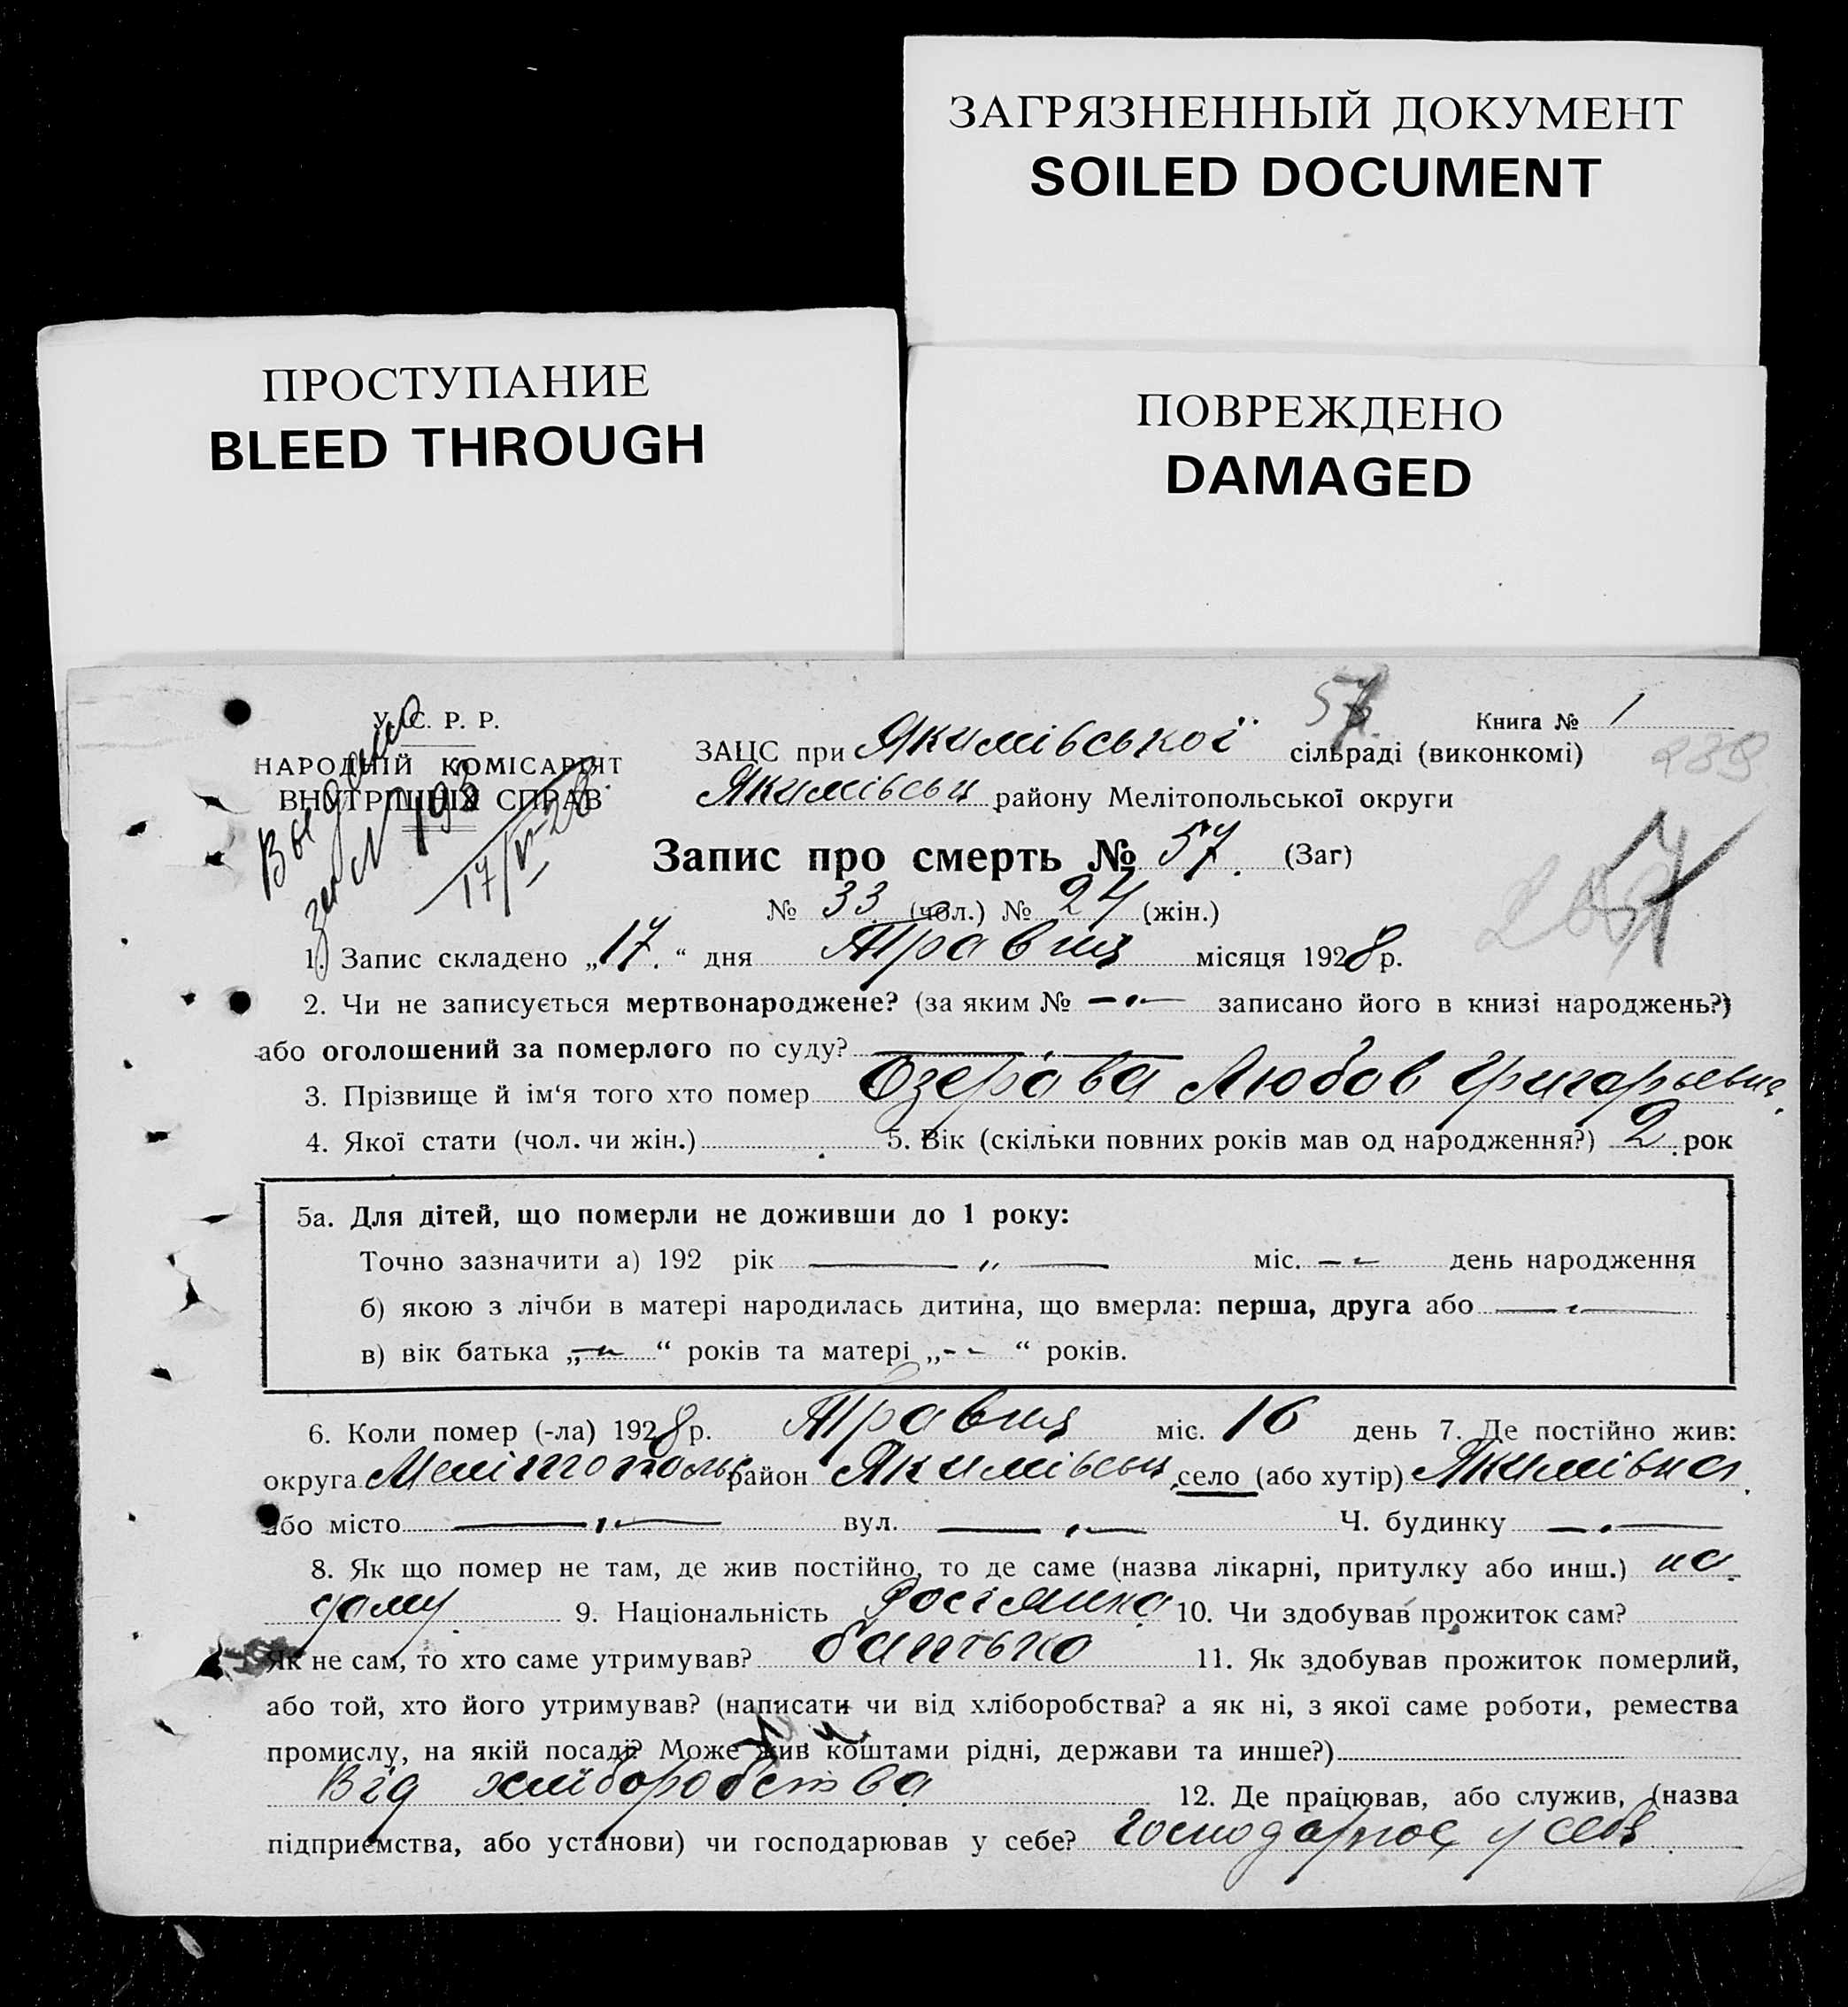 ЗАГРЯЗНЕННЫЙ ДОКУМЕНТ
SOILED DOCUMENT
ПРОСТУПАНИЕ
BLEED THROUGH
ПОВРЕЖДЕНО
DAMAGED
У. С. Р. Р.
НАРОДНІЙ КОМІСАРІЯТ
ВНУТРІШНІХ СПРАВ
Выдано
за № 193
17/V-28
57.
Книга № 1
239
ЗАЦС при Якимівської сільраді (виконкомі)
Якимівськ району Мелітопольської округи
Запис про смерть № 57. (Заг)
№ 33 (чол.) № 24 (жін.)
1. Запис складено „17.“ дня Травня місяця 1928 р.
2. Чи не записується мертвонароджене? (за яким № — „ — записано його в книзі народжень?)
або оголошений за померлого по суду?
3. Прізвище й ім‘я того хто помер Озерова Любов Григорьевна.
4. Якої стати (чол. чи жін.) 5. Вік (скільки повних років мав од народження?) 2 рок
5а. Для дітей, що померли не доживши до 1 року:
Точно зазначити а) 192 рік — „ — міс. — „ — день народження
б) якою з лічби в матері народилась дитина, що вмерла: перша, друга або — „ —
в) вік батька „ — „ — “ років та матері „ - - “ років.
6. Коли помер (-ла) 1928 р. Травня міс. 16 день 7. Де постійно жив:
округа Мелітополь район Якимівськ село (або хутір) Якимівка
або місто — „ — вул. — „ — Ч. будинку — „ —
8. Як що помер не там, де жив постійно, то де саме (назва лікарні, притулку або инш.) на
дому 9. Національність Росіянка 10. Чи здобував прожиток сам?
Як не сам, то хто саме утримував? батько 11. Як здобував прожиток померлий,
або той, хто його утримував? (написати чи від хліборобства? а як ні, з якої саме роботи, ремества
промислу, на якій посаді? Може жив коштами рідні, держави та инше?)
Від хліборобства 12. Де працював, або служив, (назва
підприємства, або установи) чи господарював у себе? господарює у себе